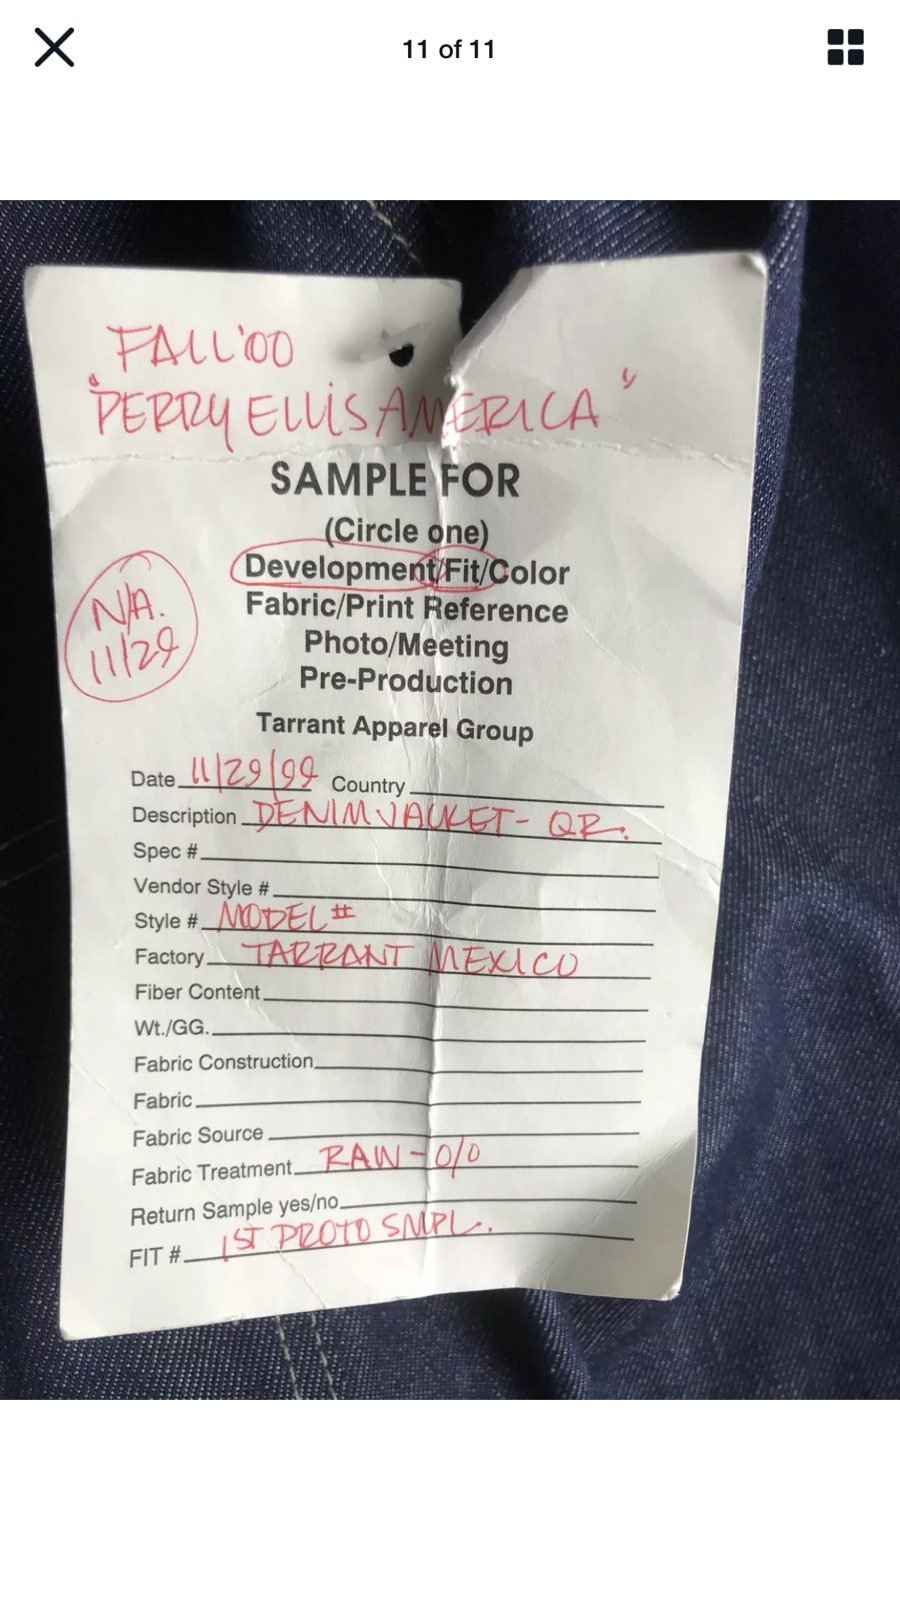 11 of 11
FALL '00
"PERRY ELLIS AMERICA"
SAMPLE FOR
(Circle one)
Development/Fit/Color
Fabric/Print Reference
Photo/Meeting
Pre-Production
N/A.
11/29
Tarrant Apparel Group
Date 11/29/99 Country
Description DENIM JACKET - QR.
Spec #
Vendor Style #
Style # MODEL #
Factory TARRANT MEXICO
Fiber Content
Wt./GG.
Fabric Construction
Fabric
Fabric Source
Fabric Treatment RAW - O/D
Return Sample yes/no
FIT # 1ST PROTO SMPL.